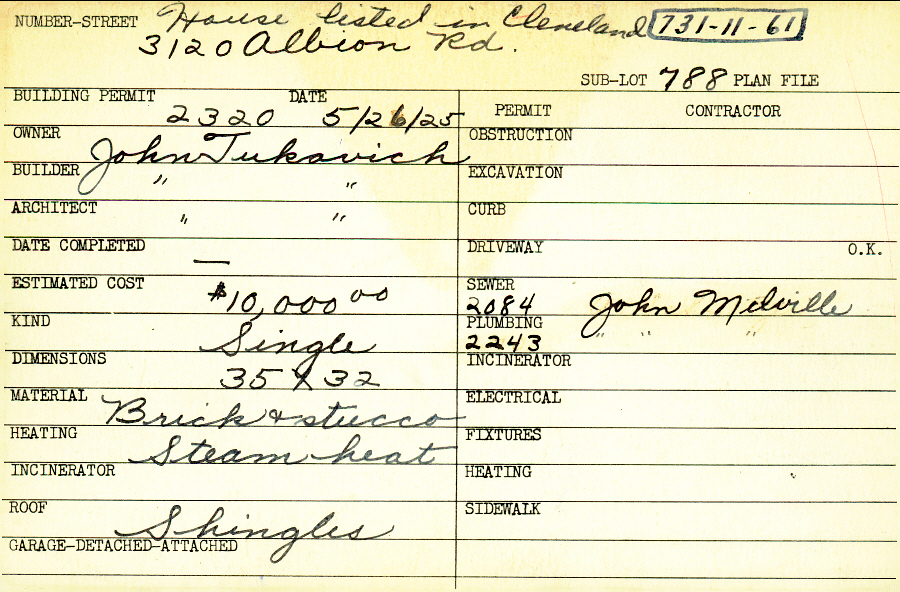 NUMBER-STREET House listed in Cleveland 731-11-61
3120 Albion Rd.
SUB-LOT 788 PLAN FILE
BUILDING PERMIT 2320 DATE 5/26/25
OWNER John Tukavich
BUILDER " "
ARCHITECT " "
DATE COMPLETED —
ESTIMATED COST $10,000 00
KIND Single
DIMENSIONS 35 X 32
MATERIAL Brick & stucco
HEATING Steam heat
INCINERATOR
ROOF Shingles
GARAGE-DETACHED-ATTACHED
PERMIT CONTRACTOR
OBSTRUCTION
EXCAVATION
CURB
DRIVEWAY O.K.
SEWER
2084 John Melville
PLUMBING
2243 " " "
INCINERATOR
ELECTRICAL
FIXTURES
HEATING
SIDEWALK